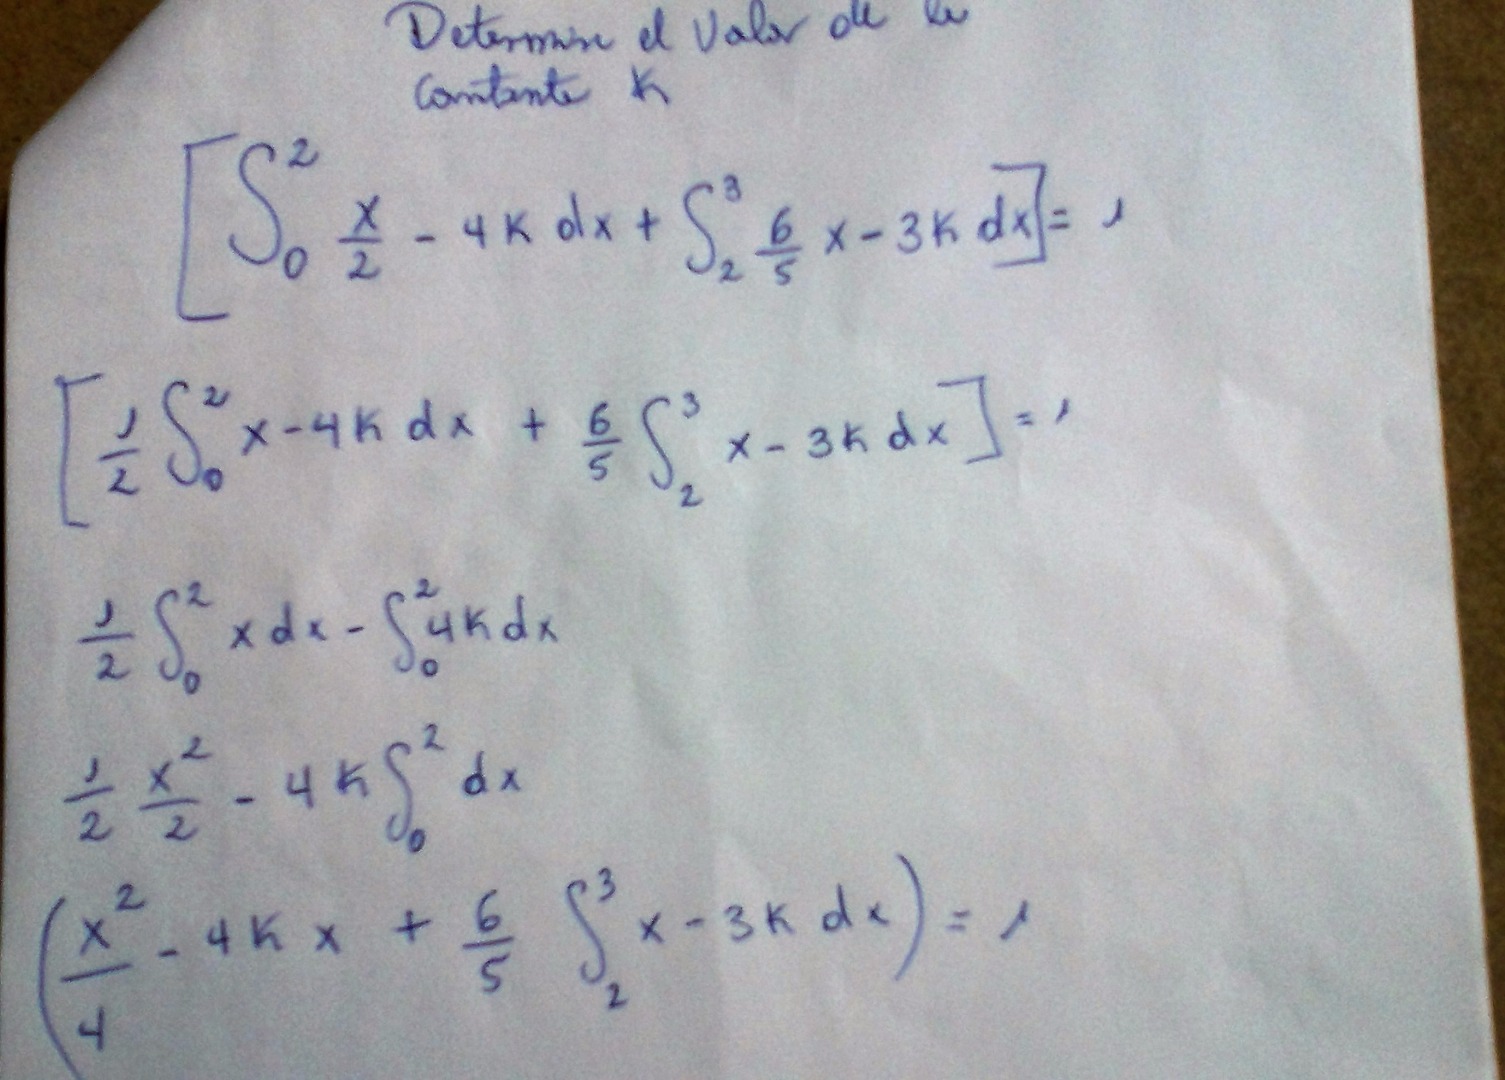 Determine el valor de la
Contante K
[∫₀² x/2 - 4K dx + ∫₂³ 6/5 x - 3K dx] = 1
[1/2 ∫₀² x - 4K dx + 6/5 ∫₂³ x - 3K dx] = 1
1/2 ∫₀² x dx - ∫₀² 4K dx
1/2 x²/2 - 4K ∫₀² dx
(x²/4 - 4K x + 6/5 ∫₂³ x - 3K dx) = 1